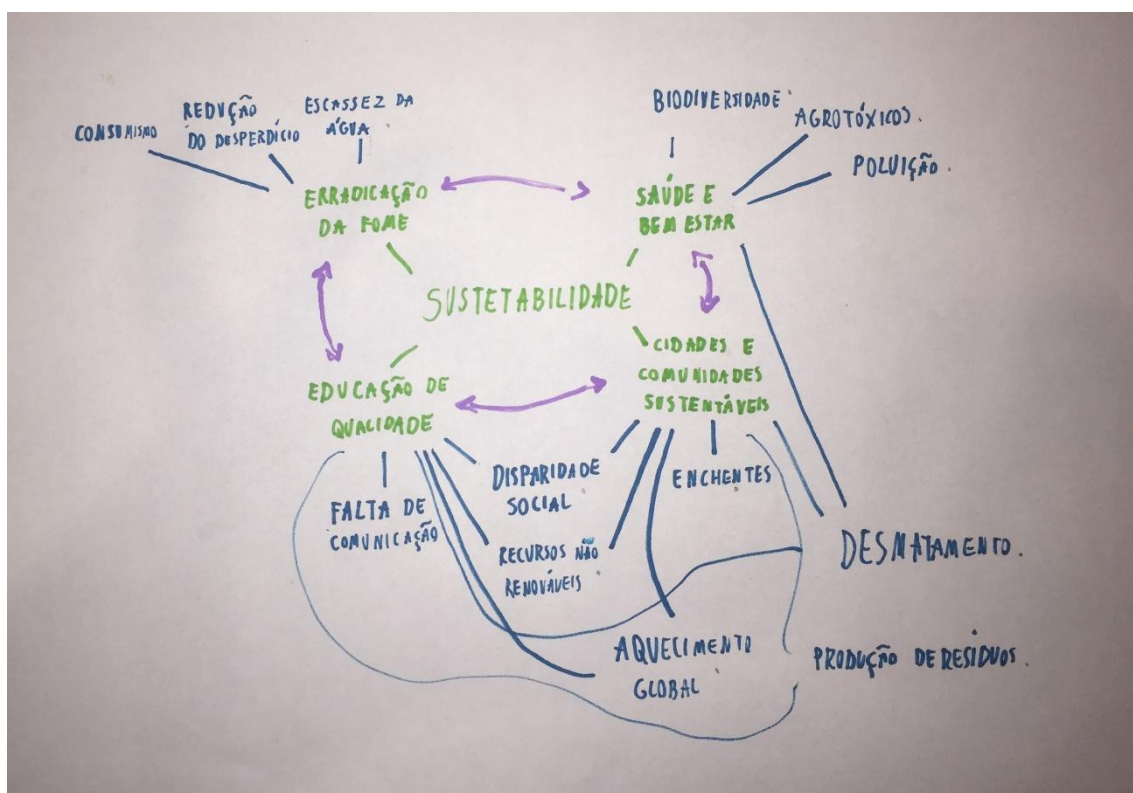 CONSUMISMO
REDUÇÃO
DO DESPERDÍCIO
ESCASSEZ DA
ÁGUA
BIODIVERSIDADE
AGROTÓXICOS.
POLUIÇÃO.
ERRADICAÇÃO
DA FOME
SAÚDE E
BEM ESTAR
SUSTETABILIDADE
EDUCAÇÃO DE
QUALIDADE
CIDADES E
COMUNIDADES
SUSTENTÁVEIS
FALTA DE
COMUNICAÇÃO
DISPARIDADE
SOCIAL
ENCHENTES
RECURSOS NÃO
RENOVÁVEIS
DESMATAMENTO.
AQUECIMENTO
GLOBAL
PRODUÇÃO DE RESÍDUOS.